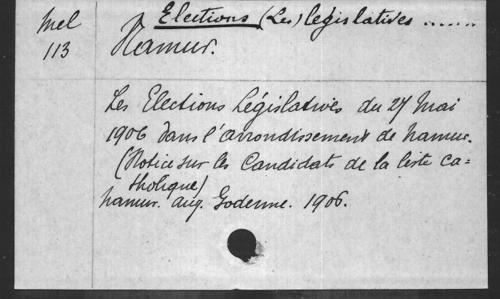 Mel Elections (Les) législatives ......
113 Namur.
Les Elections Législatives du 27 Mai
1906 dans l'arrondissement de Namur.
(Notice sur les Candidats de la liste ca-
tholique)
Namur. Aug. Godenne. 1906.